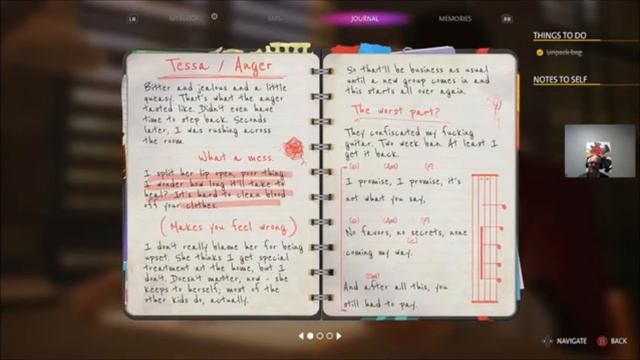 LB
MYBLOCK
SMS
JOURNAL
MEMORIES
RB
THINGS TO DO
Unpack bag
NOTES TO SELF
Tessa / Anger
Bitter and jealous and a little
queasy. That's what the anger
tasted like. Didn't even have
time to step back. Seconds
later, I was rushing across
the room.
What a mess.
I split her lip open, poor thing.
I wonder how long it'll take to
heal? It's hard to clean blood
off your clothes.
(Makes you feel wrong)
I don't really blame her for being
upset. She thinks I get special
treatment at the home, but I
don't. Doesn't matter, now - she
keeps to herself; most of the
other kids do, actually.
So that'll be business as usual
until a new group comes in and
this starts all over again.
The worst part?
They confiscated my fucking
guitar. Two week ban. At least I
get it back.
I promise, I promise, it's
not what you say,
No favors, no secrets, none
coming my way.
And after all this, you
still had to pay.
NAVIGATE
B BACK